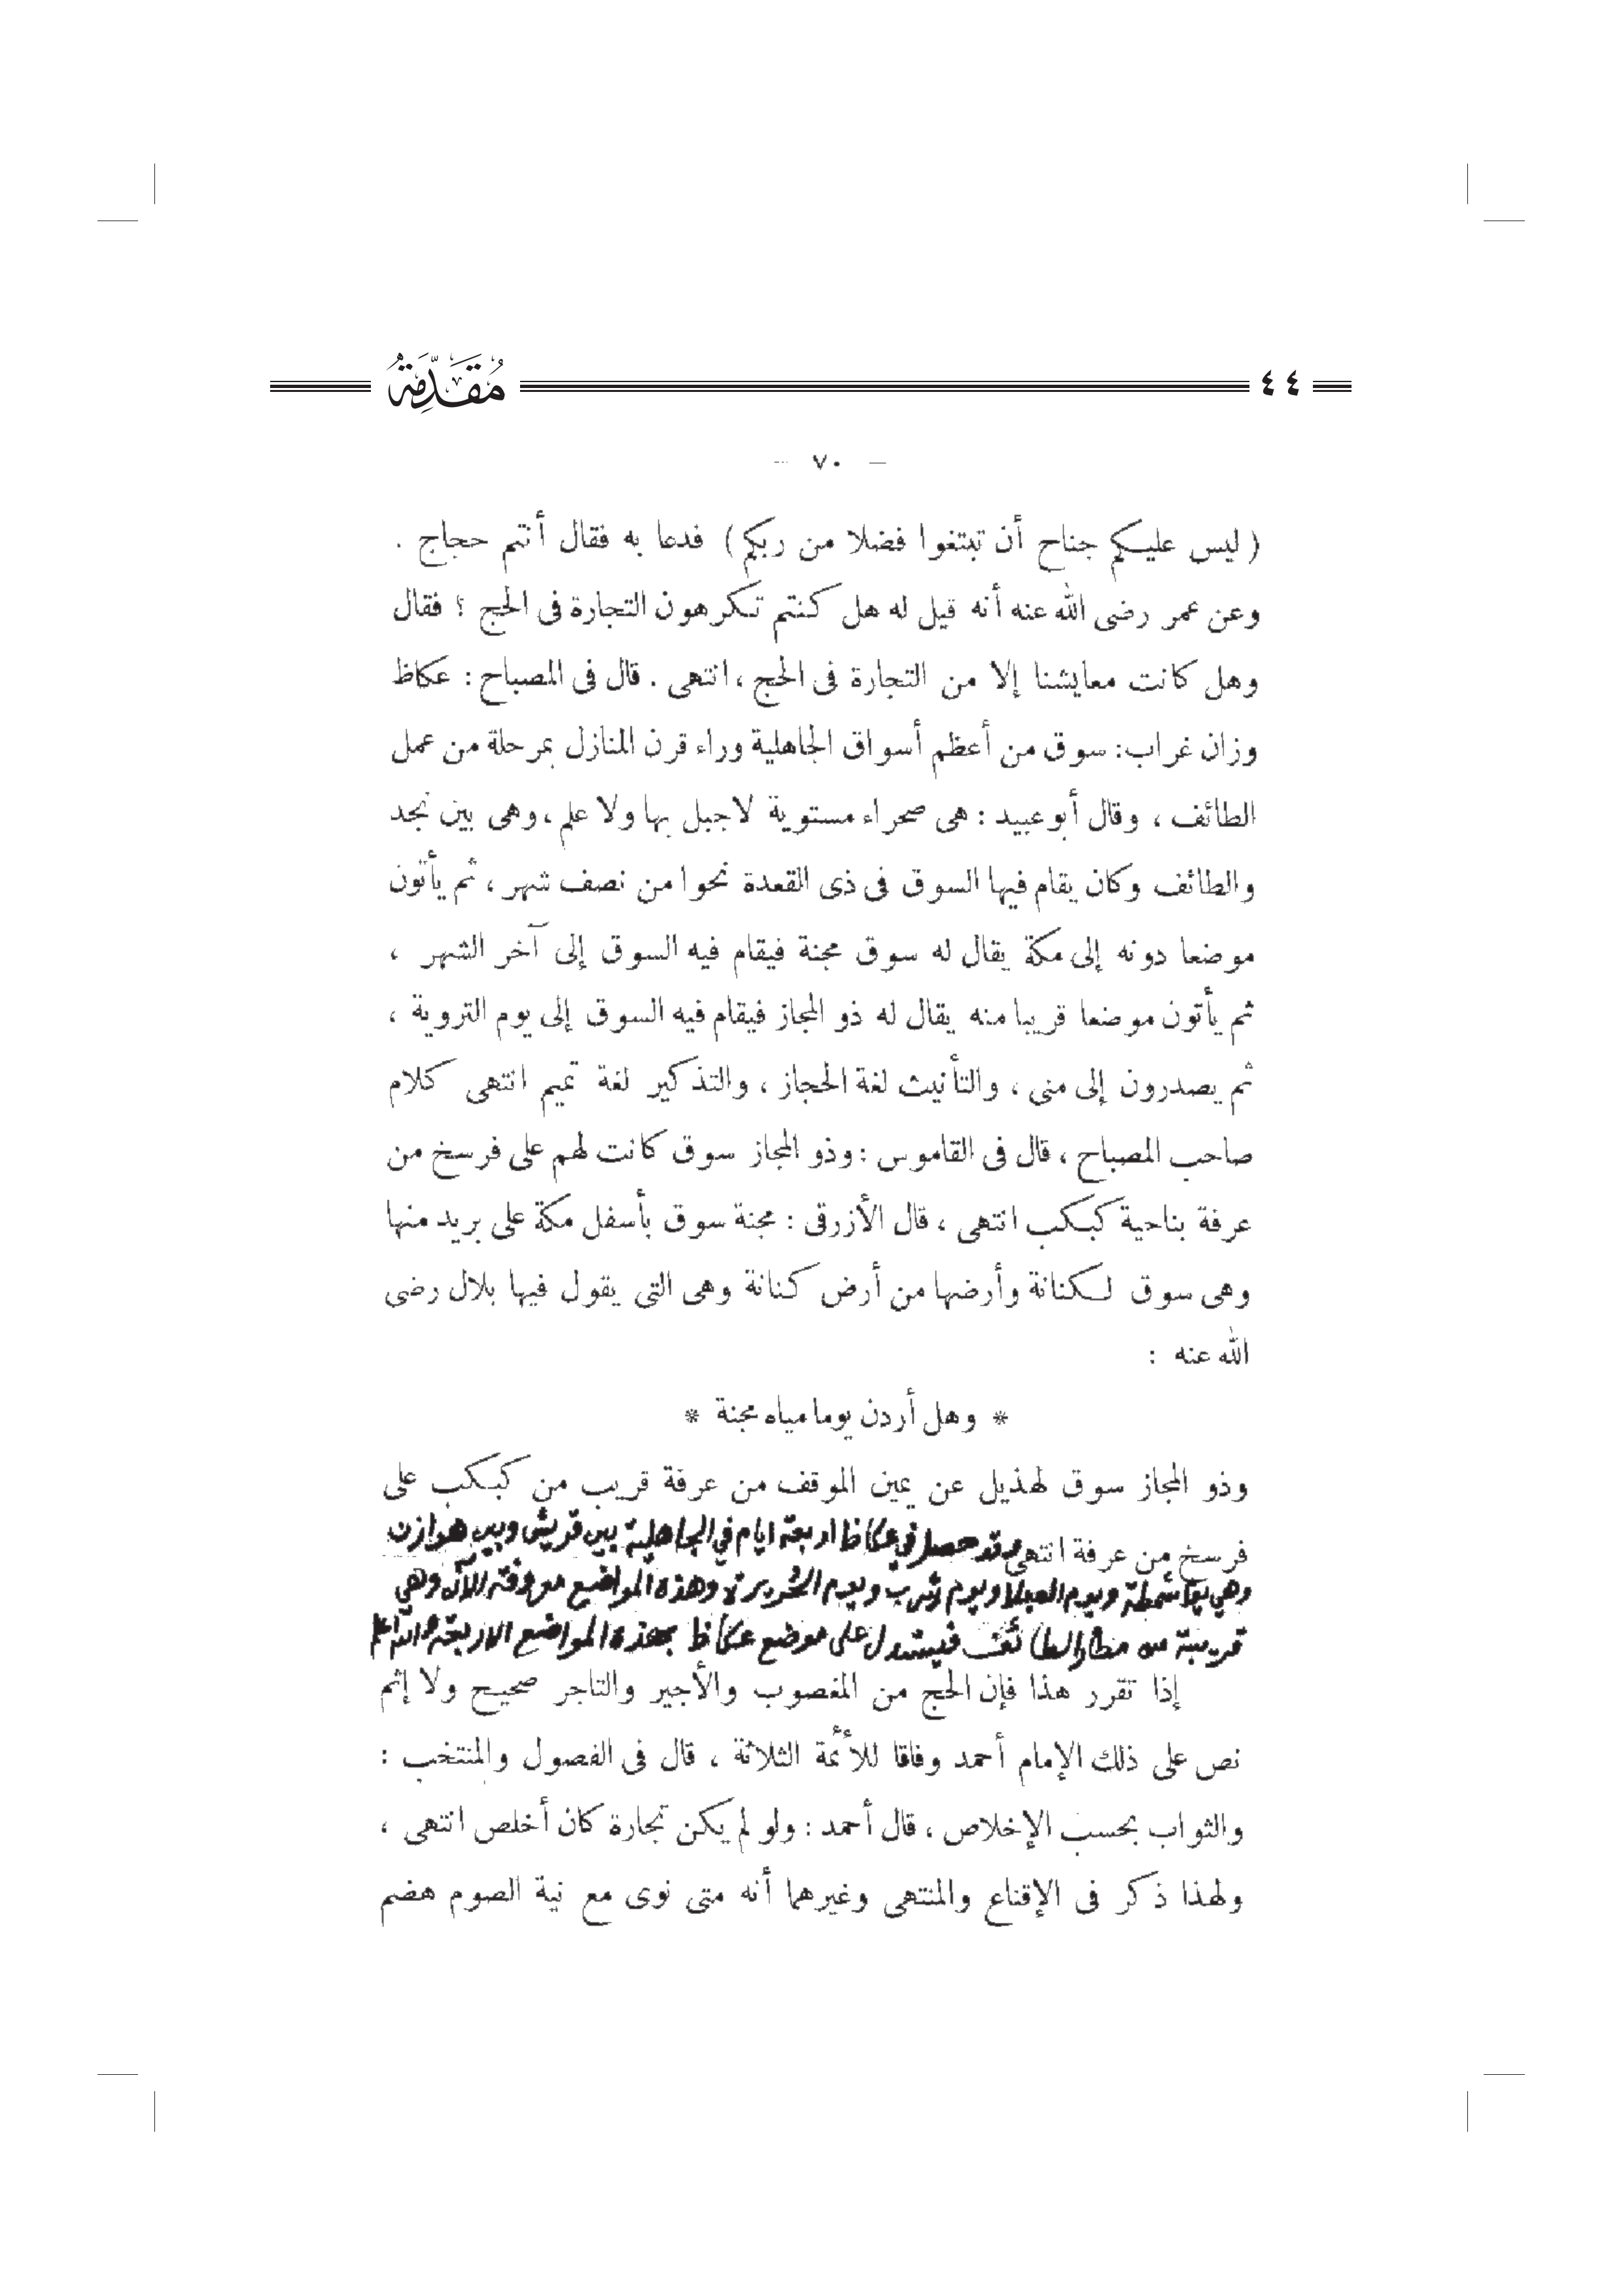 ٤٤ مُقَدِّمَةٌ
— ٧٠ —
( ليس عليكم جناح أن تبتغوا فضلا من ربكم ) فدعا به فقال أنتم حجاج .
وعن عمر رضى الله عنه أنه قيل له هل كنتم تكرهون التجارة فى الحج ؟ فقال
وهل كانت معايشنا إلا من التجارة فى الحج ، انتهى . قال فى المصباح : عكاظ
وزان غراب : سوق من أعظم أسواق الجاهلية وراء قرن المنازل بمرحلة من عمل
الطائف ، وقال أبو عبيد : هى صحراء مستوية لا جبل بها ولا علم ، وهى بين نجد
والطائف وكان يقام فيها السوق فى ذى القعدة نحوا من نصف شهر ، ثم يأتون
موضعا دونه إلى مكة يقال له سوق مجنة فيقام فيه السوق إلى آخر الشهر ،
ثم يأتون موضعا قريبا منه يقال له ذو المجاز فيقام فيه السوق إلى يوم التروية ،
ثم يصدرون إلى منى ، والتأنيث لغة الحجاز ، والتذكير لغة تميم انتهى كلام
صاحب المصباح ، قال فى القاموس : وذو المجاز سوق كانت لهم على فرسخ من
عرفة بناحية كبكب انتهى ، قال الأزرقى : مجنة سوق بأسفل مكة على بريد منها
وهى سوق لكنانة وأرضها من أرض كنانة وهى التى يقول فيها بلال رضى
الله عنه :
* وهل أردن يوما مياه مجنة *
وذو المجاز سوق لهذيل عن يمين الموقف من عرفة قريب من كبكب على
فرسخ من عرفة انتهى وقد حصل في عكاظ اربعة ايام في الجاهلية بين قريش وبين هوازن
وهي شمطة ويوم العبلا ويوم شرب ويوم الحريرة وهذه المواضع معروفة الآن وهي
قريبة من مطار الطائف فيستدل على موضع عكاظ بهذه المواضع الاربعة والله اعلم
إذا تقرر هذا فإن الحج من المغصوب والأجير والتاجر صحيح ولا إثم
نص على ذلك الإمام أحمد وفاقا للأئمة الثلاثة ، قال فى الفصول والمنتخب :
والثواب بحسب الإخلاص ، قال أحمد : ولو لم يكن تجارة كان أخلص انتهى ،
ولهذا ذكر فى الإقناع والمنتهى وغيرهما أنه متى نوى مع نية الصوم هضم